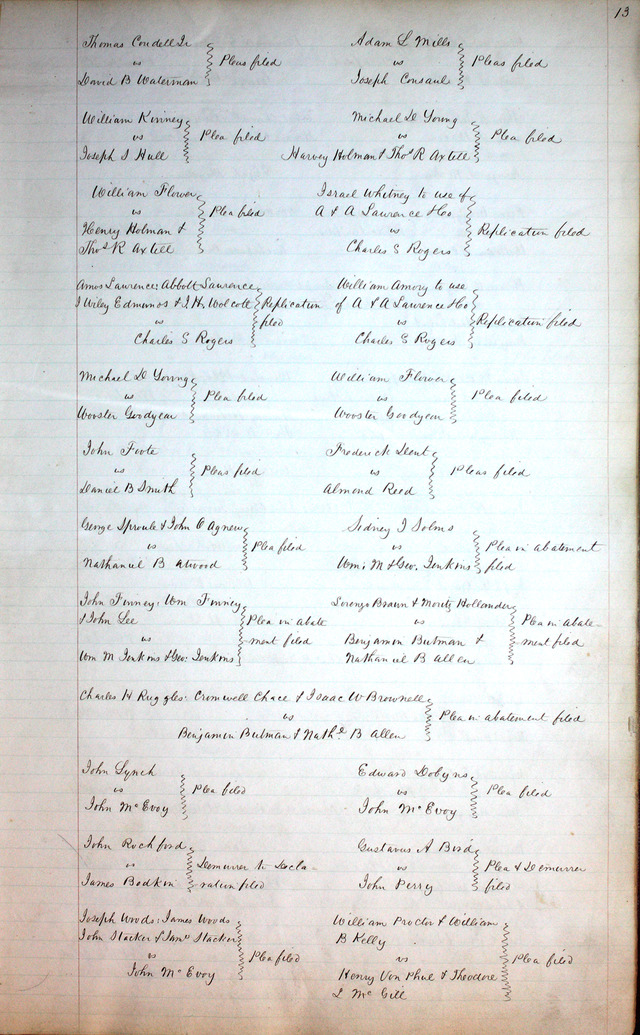 13
Thomas Condell Jr
vs
David B Waterman
Pleas filed
Adam L Mills
vs
Joseph Consaul
Pleas filed
William Kinney
vs
Joseph S Hull
Plea filed
Michael De Young
vs
Harvey Holman & Thos R Axtell
Plea filed
William Flower
vs
Henry Holman &
Thos R Axtell
Plea filed
Israel Whitney to use of
A & A Lawrence & Co
vs
Charles S Rogers
Replication filed
Amos Lawrence: Abbott Lawrence
J Wiley Edmunds & J. H. Wolcott
vs
Charles S Rogers
Replication
filed
William Amory to use
of A & A Lawrence & Co
vs
Charles S Rogers
Replication filed
Michael De Young
vs
Wooster Goodyear
Plea filed
William Flower
vs
Wooster Goodyear
Plea filed
John Foote
vs
Daniel B Smith
Pleas filed
Frederick Dent
vs
Almond Reed
Pleas filed
George Sproule & John C Agnew
vs
Nathaniel B Atwood
Plea filed
Sidney J Solms
vs
Wm: M & Geo. Jenkins
Plea in abatement
filed
John Finney: Wm Finney
& John Lee
vs
Wm M Jenkins & Geo: Jenkins
Plea in abate
ment filed
Lorenzo Braun & Moritz Hollander
vs
Benjamin Butman &
Nathaniel B Allen
Plea in abate-
ment filed
Charles H Ruggles: Cromwell Chace & Isaac W Brownell
vs
Benjamin Butman & Nathl B Allen
Plea in abatement filed
John Lynch
vs
John McEvoy
Plea filed
Edward Dobyns
vs
John McEvoy
Plea filed
John Rochford
vs
James Bodkin
Demurrer to Decla-
ration filed
Gustavus A Bird
vs
John Perry
Plea & Demurrer
filed
Joseph Woods: James Woods
John Stacker & Saml Stacker
vs
John McEvoy
Plea filed
William Proctor & William
B Kelly
vs
Henry Von Phul & Theodore
L McGill
Plea filed